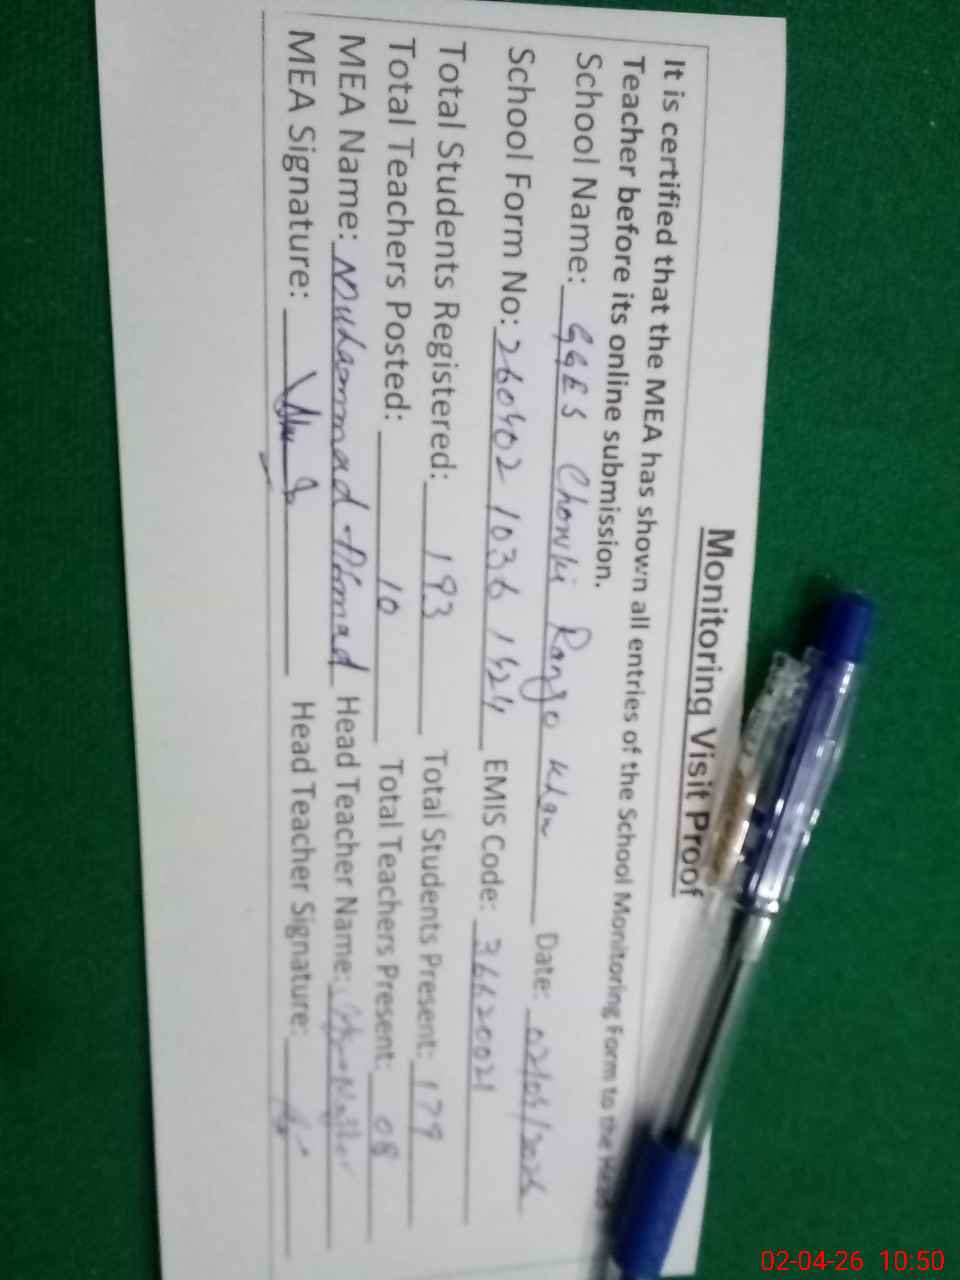 Monitoring Visit Proof
It is certified that the MEA has shown all entries of the School Monitoring Form to the Head
Teacher before its online submission.
School Name: GGES Chowki Rango Khan Date: 02/04/2026
School Form No: 260402 1036 1524 EMIS Code: 36620021
Total Students Registered: 193 Total Students Present: 179
Total Teachers Posted: 10 Total Teachers Present: 08
MEA Name: Muhammad Ahmad Head Teacher Name:
MEA Signature: Head Teacher Signature:
02-04-26 10:50